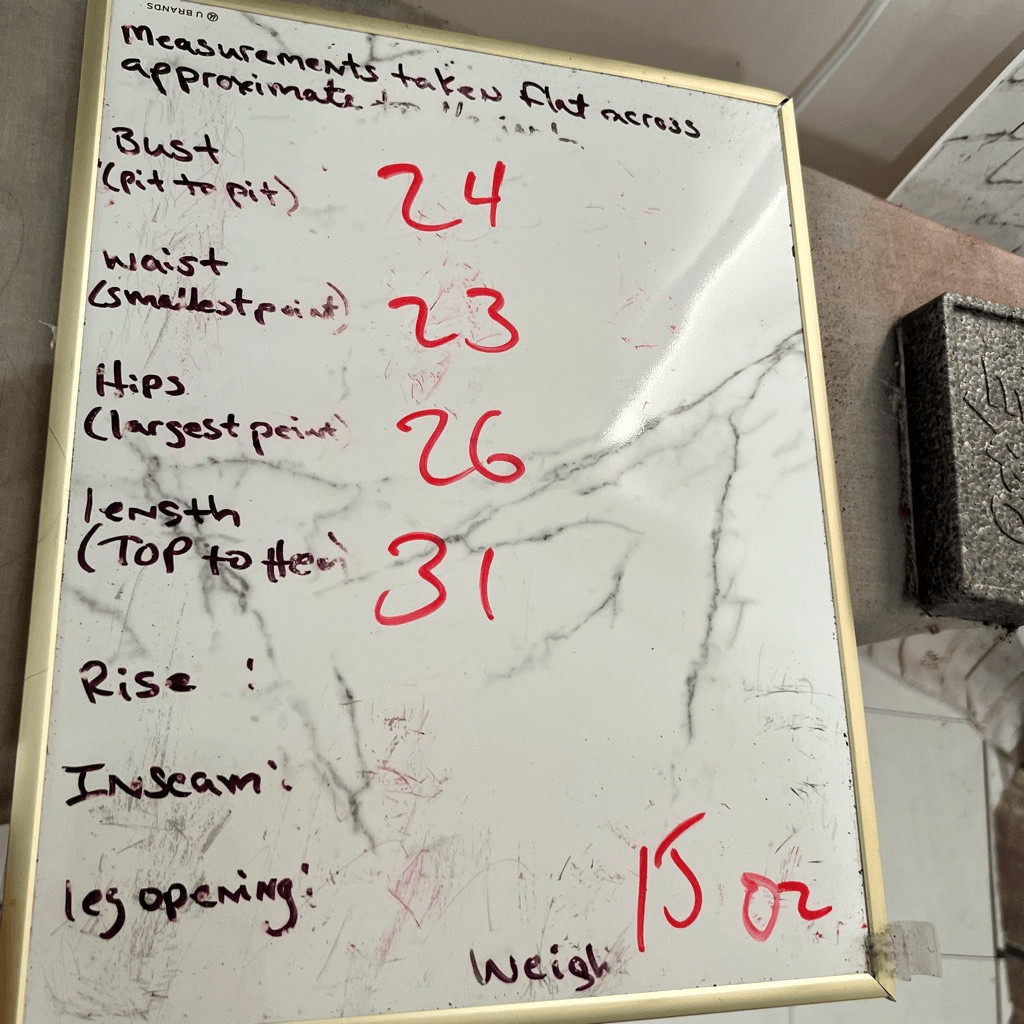 U BRANDS
Measurements taken flat across
approximate to
Bust
(pit to pit) 24
waist
(smallest point) 23
Hips
(largest point) 26
length
(TOP to Hem) 31
Rise :
Inseam :
leg opening :
15 oz
Weigh